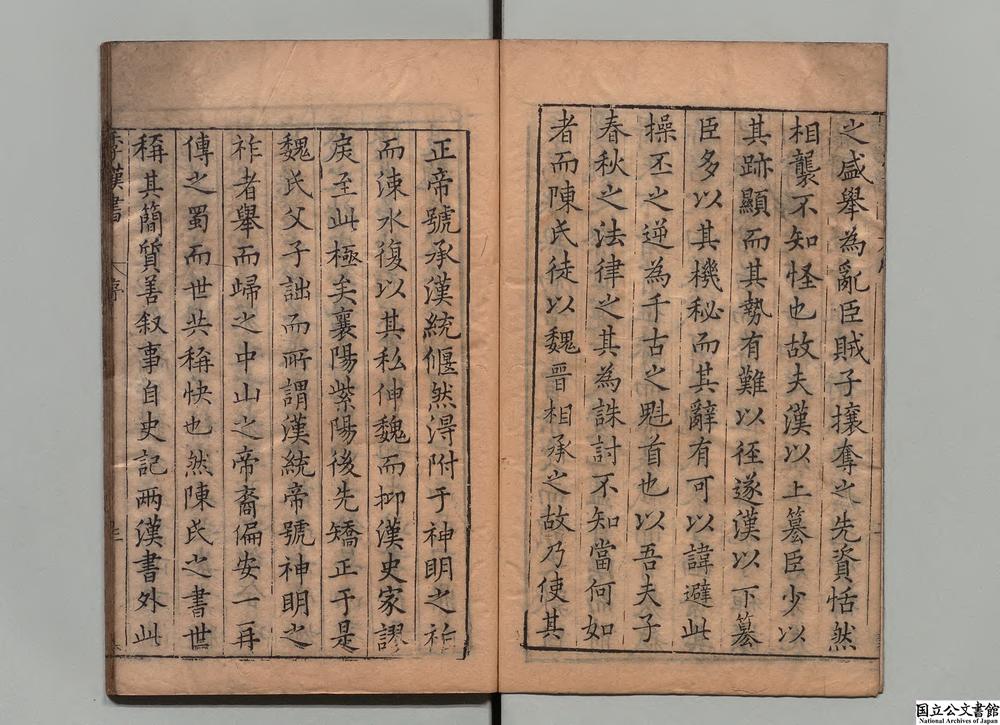 之盛舉為亂臣賊子攘奪之先資恬然
相襲不知怪也故夫漢以上篡臣少以
其跡顯而其勢有難以徑遂漢以下篡
臣多以其機秘而其辭有可以諱避此
操丕之逆為千古之魁首也以吾夫子
春秋之法律之其為誅討不知當何如
者而陳氏徒以魏晋相承之故乃使其
正帝號承漢統偃然淂附于神明之祚
而涑水復以其私伸魏而抑漢史家謬
戾至此極矣襄陽紫陽後先矯正于是
魏氏父子詘而所謂漢統帝號神明之
祚者舉而歸之中山之帝裔偏安一再
傳之蜀而世共稱快也然陳氏之書世
稱其簡質善叙事自史記两漢書外此
季漢書 序
国立公文書館
National Archives of Japan